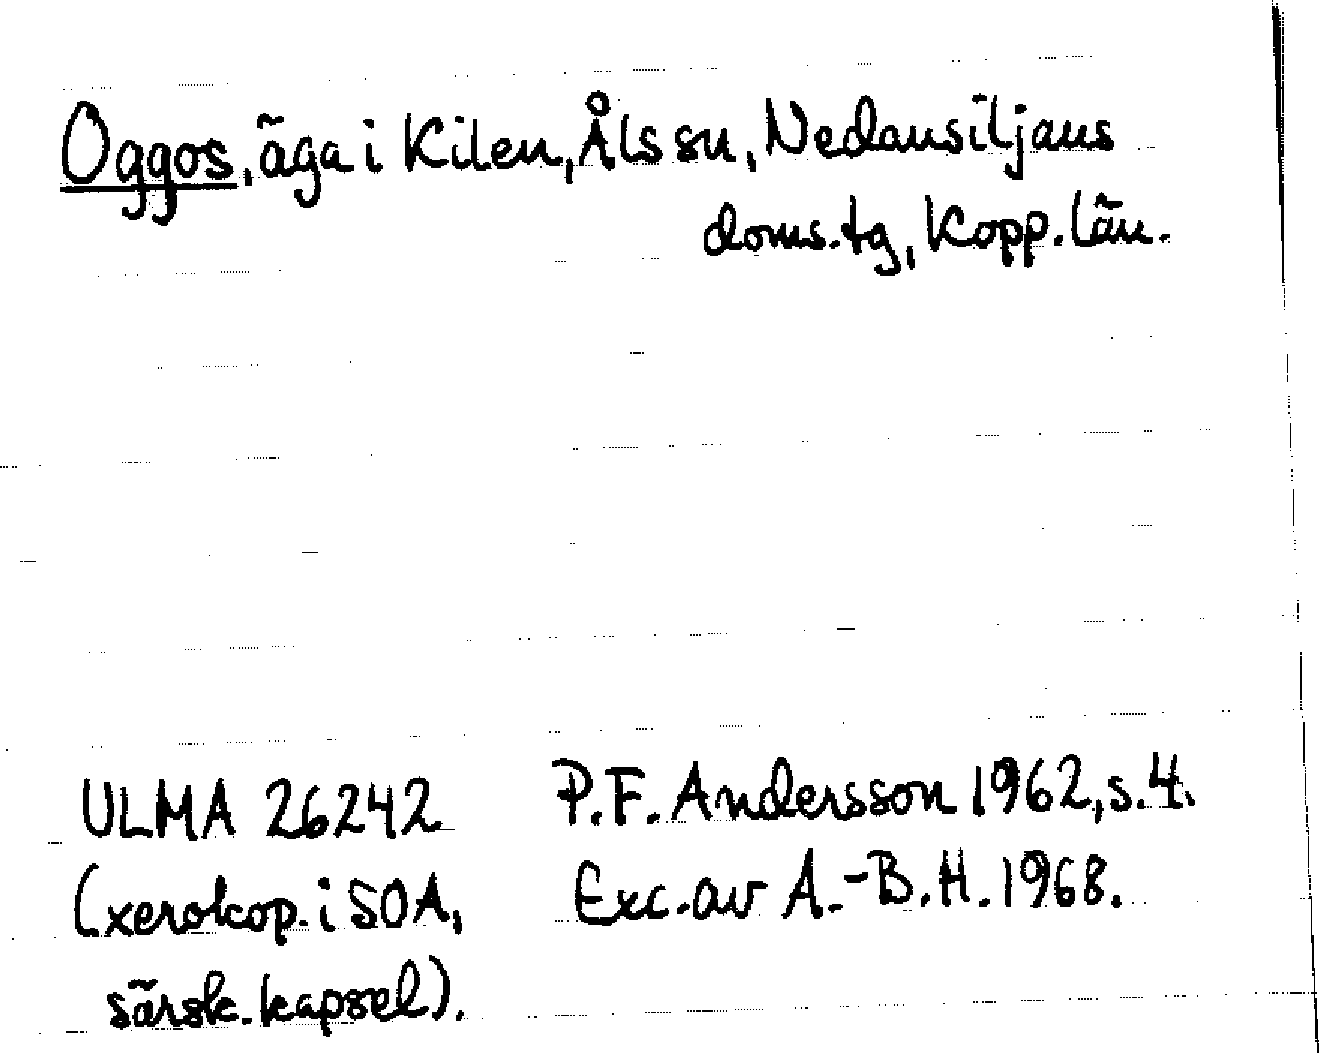 Oggos, äga i Kilen, Åls sn, Nedansiljans
doms.tg, Kopp. län.
ULMA 26242 P.F. Andersson 1962, s. 4.
(xerokop. i SOA, Exc. av A.-B.H. 1968.
särsk. kapsel).